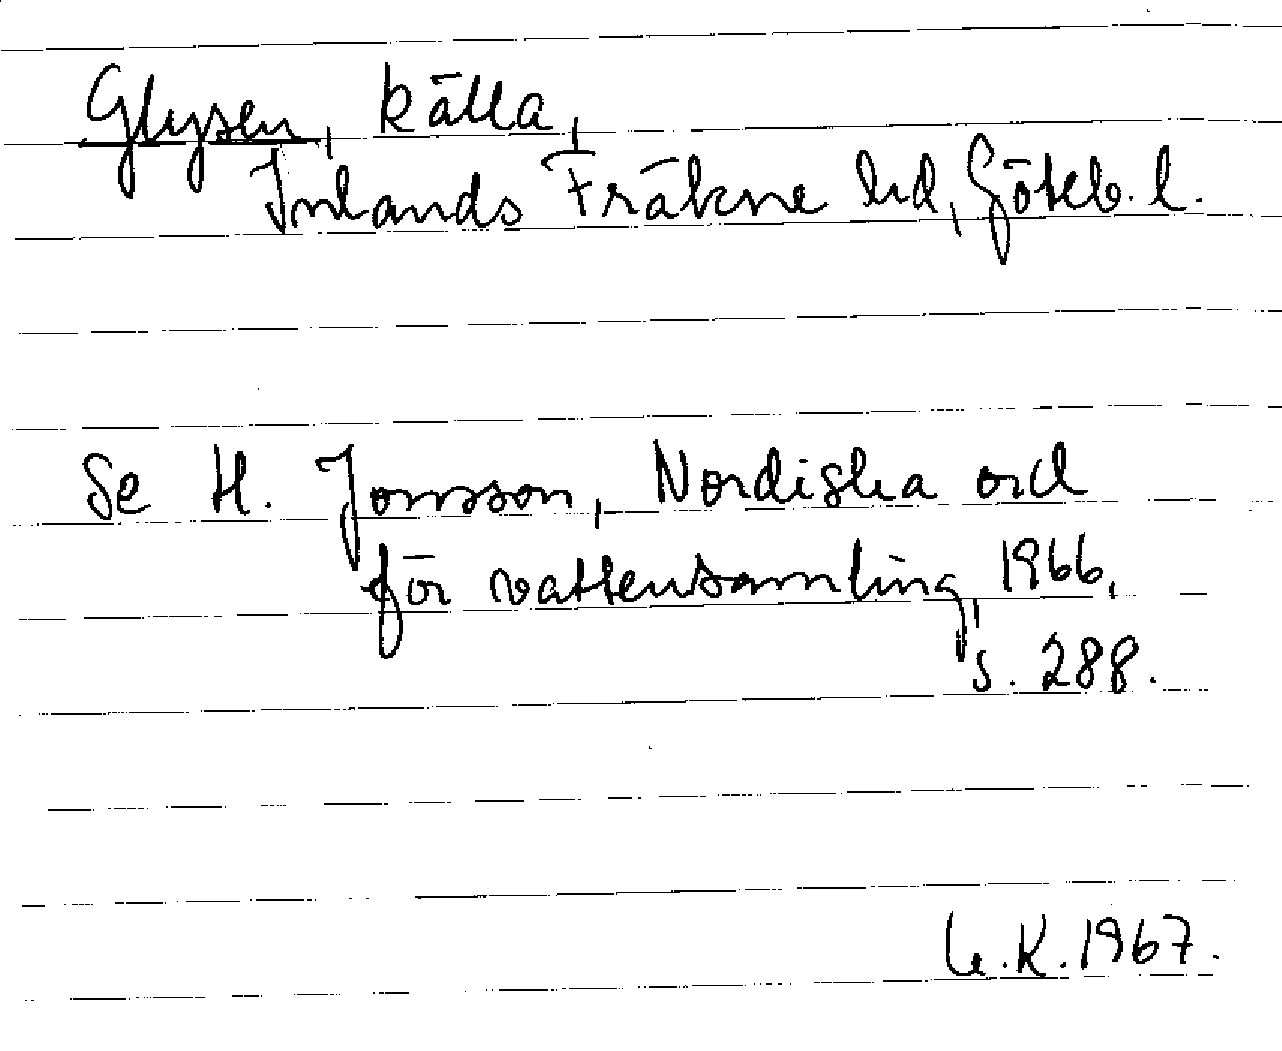 Glysen, källa,
Inlands Fräkne hd, Göteb. l.
Se H. Jonsson, Nordiska ord
för vattensamling, 1966,
s. 288.
K. 1967.